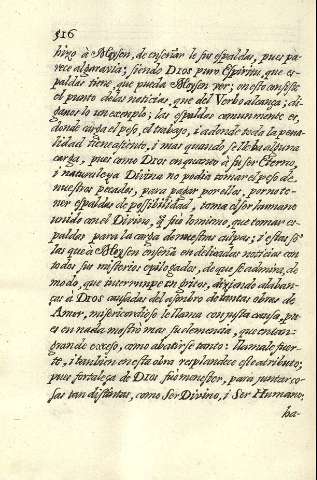 516
hizo à Moysen, de enseñar le sus espaldas, pues pa-
rece algaravia; siendo DIOS puro Espiritu, que es-
paldas tiene, que pueda Moysen ver; en esto consiste
el punto delas noticias, que del Verbo alcança; di-
ganes lo un exemplo; las espaldas comunmente es,
donde carga el peso, el trabajo, i adonde toda la pena-
lidad tiene asiento, i mas quando se lleba alguna
carga, pues como Dios en quanto à su ser Eterno,
i naturaleza Divina no podia tomar el peso de
nuestros pecados, para pagar por ellos, por no te-
ner espaldas de possibilidad, toma el ser humano
unido con el Divino, q̃ fuè lo mismo, que tomar es-
paldas para la carga de nuestras culpas; i estas sõ
las que à Moysen enseña en delicadas noticias con
todos sus misterios epilogados, de que se admira, de
modo, que interrumpe en gritos, diziendo alaban-
ças à DIOS causadas del asonbro de tantas obras de
Amor, misericordioso le llama con justa causa, pu-
es en nada mostrò mas su clemencia, que en tan
grande exceso, como abatirse tanto: llamale fuer-
te, i tambien en esta obra resplandece este atributo;
pues fortaleça de DIOS fuè menester, para juntar co-
sas tan distintas, como Ser Divino, i Ser Humano,
ha-